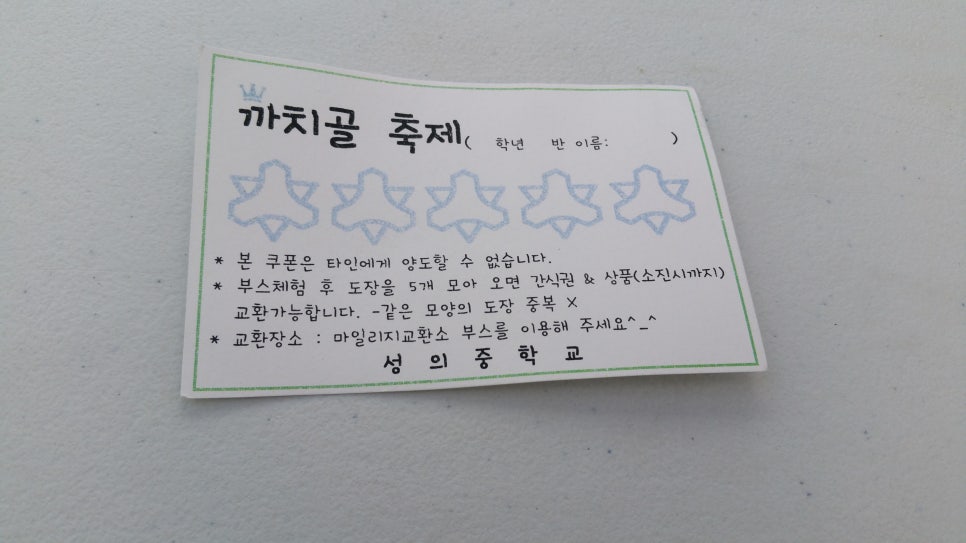 까치골 축제( 학년 반 이름: )
* 본 쿠폰은 타인에게 양도할 수 없습니다.
* 부스체험 후 도장을 5개 모아 오면 간식권 & 상품(소진시까지)
교환가능합니다. -같은 모양의 도장 중복 X
* 교환장소 : 마일리지교환소 부스를 이용해 주세요^_^
성 의 중 학 교